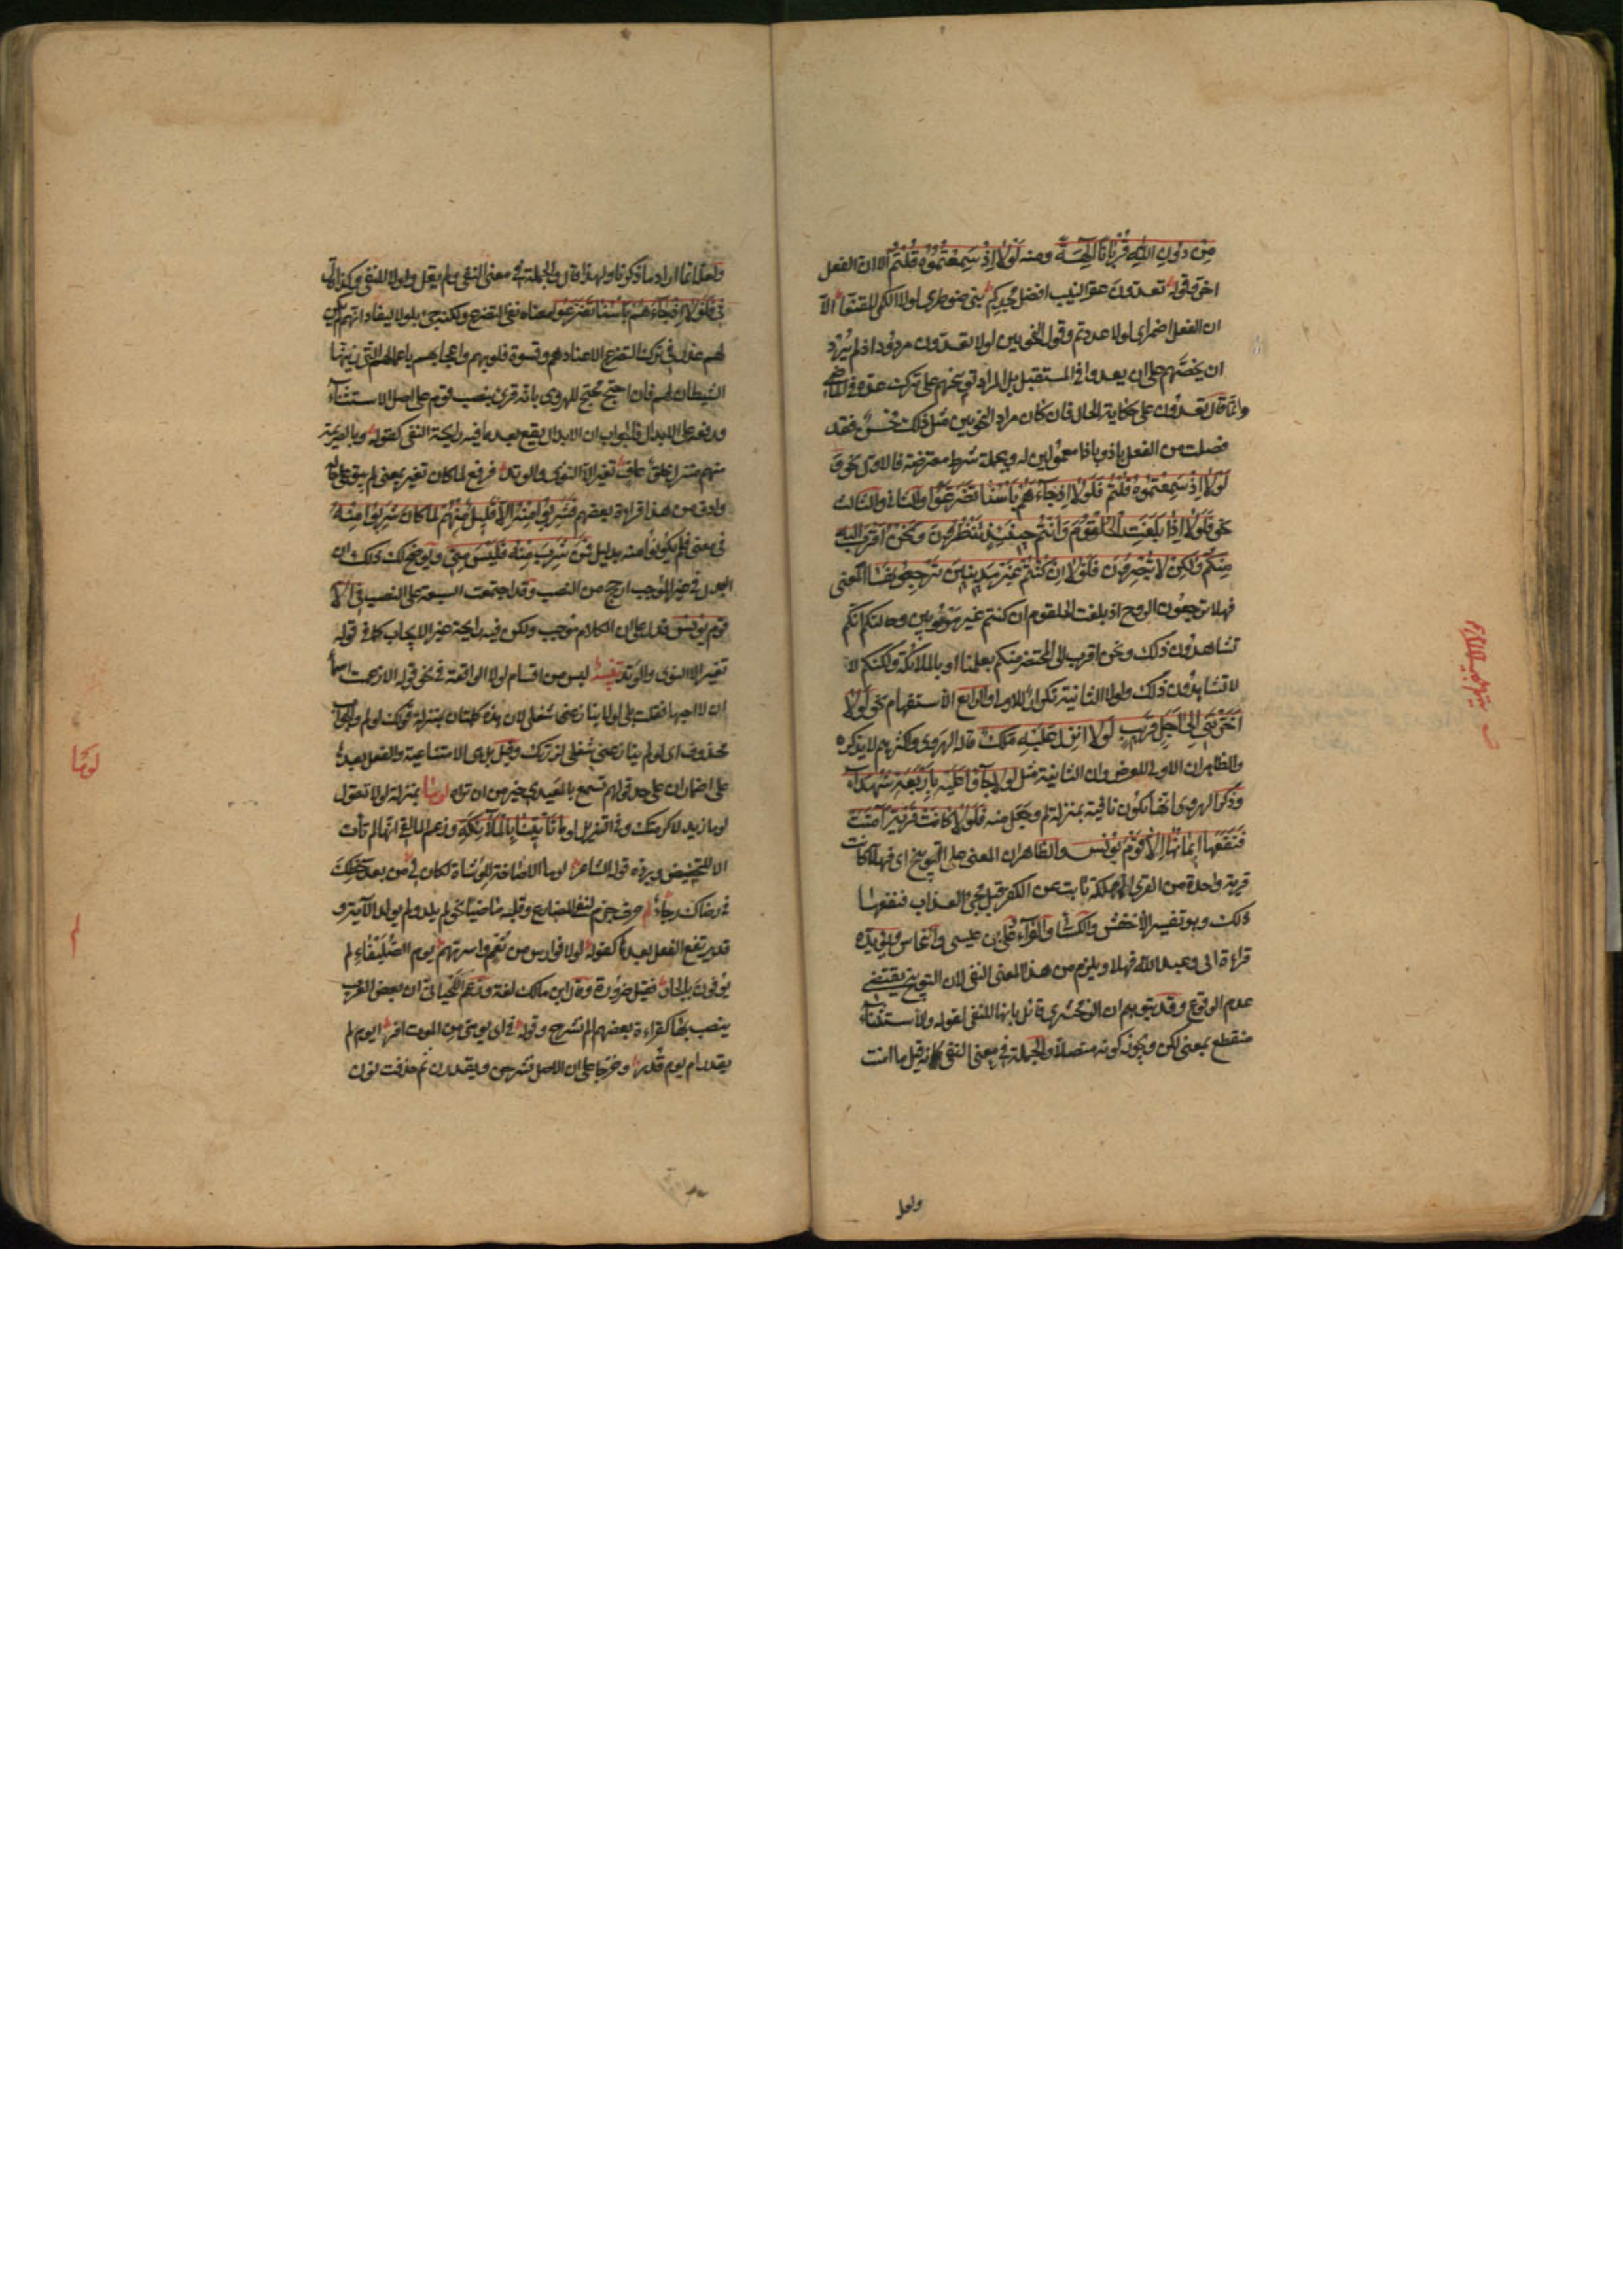 مِنْ دُونِ اللهِ قُرْبَانًا آلِهَةً ومنه لَوْلَا إِذْ سَمِعْتُمُوهُ قُلْتُمْ الا ان الفعل
اخر وقوله تعدون عقر النيب افضل مجدكم بنى ضوطرى لولا الكمى المقنعا الا
ان الفعل اضمر اى لولا عددتم وقول النحويين لولا تعدون مردود اذ لم يُرِدْ
ان يحضّهم على ان يعدوا فى المستقبل بل المراد توبيخهم على ترك عده فى الماضى
وانما قال تعدون على حكاية الحال فان كان مراد النحويين مثل ذلك فحسن فقد
فصلت من الفعل باذ وباذا معمولين له وبجملة شرط معترضة فالاول نحو وَ
لَوْلَا إِذْ سَمِعْتُمُوهُ قُلْتُمْ فَلَوْلَا إِذْ جَآءَهُمْ بَأْسُنَا تَضَرَّعُوا والثانى والثالث
نحو فَلَوْلَا إِذَا بَلَغَتِ الْحُلْقُومَ وَأَنْتُمْ حِينَئِذٍ تَنْظُرُونَ وَنَحْنُ أَقْرَبُ إِلَيْهِ
مِنْكُمْ وَلٰكِنْ لَا تُبْصِرُونَ فَلَوْلَا إِنْ كُنْتُمْ غَيْرَ مَدِينِينَ تَرْجِعُونَهَا المعنى
فهلا ترجعون الروح اذ بلغت الحلقوم ان كنتم غير مربوبين وحالتكم انكم
تشاهدون ذلك ونحن اقرب الى المحتضر منكم بعلمنا او بالملائكة ولكنكم لا
لا تشاهدون ذلك ولولا الثانية تكرار للاولى والرابع الاستفهام نحو لَوْلَا
أَخَّرْتَنِي إِلَى أَجَلٍ قَرِيبٍ لَوْلَا أُنْزِلَ عَلَيْهِ مَلَكٌ قاله الهروى واكثرهم لا يذكره
والظاهر ان الاولى للعرض وان الثانية مثل لَوْلَا جَآؤُا عَلَيْهِ بِأَرْبَعَةِ شُهَدَآءَ
وذكر الهروى انها تكون نافية بمنزلة لم وجعل منه فَلَوْلَا كَانَتْ قَرْيَةٌ آمَنَتْ
فَنَفَعَهَا إِيمَانُهَا إِلَّا قَوْمَ يُونُسَ والظاهر ان المعنى على التوبيخ اى فهلا كانت
قرية واحدة من القرى المهلكة تابت عن الكفر قبل مجئ العذاب فنفعها
ذلك وهو تفسير الأخفش والكسائى والفراء وعلى بن عيسى والنحاس ويؤيده
قراءة ابى وعبد الله فهلا ويلزم من هذا المعنى النفى لان التوبيخ يقتضى
عدم الوقوع وقد يتوهم ان الزمخشرى قائل بانها للنفى لقوله والاستثناء
منقطع بمعنى لكن ويجوز كونه متصلا والجملة فى معنى النفى كانه قيل ما امنت
ولعل
ولعله انما اراد ما ذكرنا ولهذا قال والجملة فى معنى النفى ولم يقل ولولا للنفى وكذا قال
فى فَلَوْلَا إِذْ جَاءَهُمْ بَأْسُنَا تَضَرَّعُوا معناه نفى التضرع ولكنه جئ بلولا ليفاد انهم لم يكن
لهم عذر فى ترك التضرع الا عنادهم وقسوة قلوبهم واعجابهم باعمالهم التى زينها
الشيطان لهم فان احتج محتج للهروى بانه قرئ بنصب قوم على اصل الاستثناء
ورفعه على الابدال فالجواب ان الابدال يقع بعد ما فيه رايحة النفى كقوله وبالصريمة
منهم منزل خلق عاف تغير الا النؤى والوتد فرفع لما كان تغير بمعنى لم يبق على حاله
وادق من هذا قراءة بعضهم فَشَرِبُوا مِنْهُ إِلَّا قَلِيلٌ مِنْهُمْ لما كان شَرِبُوا مِنْهُ
فى معنى فلم يكونوا منه بدليل فَمَنْ شَرِبَ مِنْهُ فَلَيْسَ مِنِّي ويوضح لك ذلك ان
البدل فى غير الموجب ارجح من النصب وقد اجتمعت السبعة على النصب فى إِلَّا
قَوْمَ يُونُسَ فدل على ان الكلام موجب ولكن فيه رايحة غير الايجاب كما فى قوله
تغير الا النؤى والوتد تنبيه ليس من اقسام لولا الواقعة فى نحو قوله الا زعمت اسما
ان لا احبها فقلت بلى لولا ينازعنى شغلى لان هذه كلمتان بمنزلة قولك لو لم والجواب
محذوف اى لو لم ينازعنى شغلى لزرتك وقيل بل هى الامتناعية والفعل بعدها
على اضمار ان على حد قولهم تسمع بالمعيدى خير من ان تراه لوما بمنزلة لولا تقول
لوما زيد لاكرمتك وفى التنزيل لَوْ مَا تَأْتِينَا بِالْمَلَائِكَةِ وزعم المالقى انها لم تأت
الا للتحضيض ويرده قول الشاعر لوما الاصاخة للوشاة لكان لى من بعد سخطك
فى رضاك رجاء لم حرف جزم لنفى المضارع وقلبه ماضيا نحو لم يلد ولم يولد الآية و
قد يرتفع الفعل بعدها كقوله لولا فوارس من نُعْمٍ واسرتهم يوم الصُّلَيْفاءِ لم
يوفون بالجار فقيل ضرورة وقال ابن مالك لغة وزعم اللحيانى ان بعض العرب
ينصب بها كقراءة بعضهم الم نشرح وقوله فى اى يومى من الموت افر ايوم لم
يقدر ام يوم قدر وخرجا على ان الاصل نشرحن ويقدرن ثم حذفت نون
لوما
لم